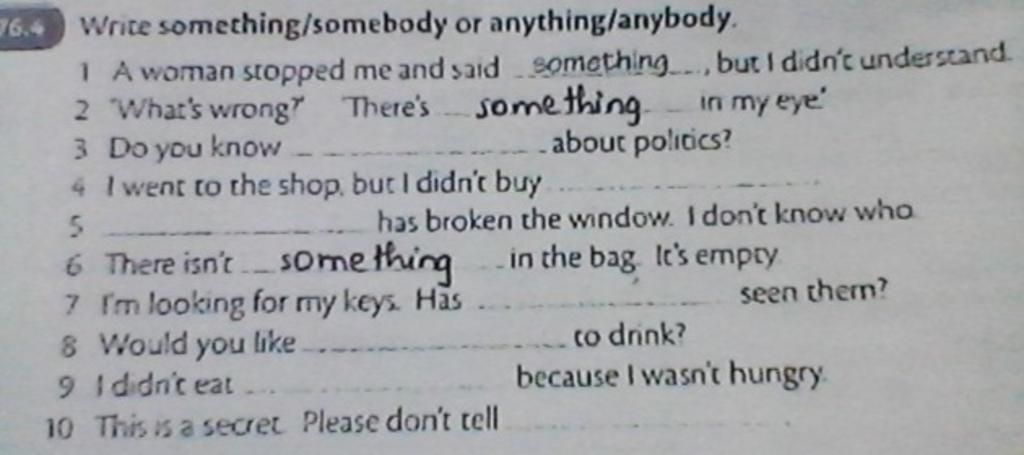 76.4 Write something/somebody or anything/anybody.
1 A woman stopped me and said something, but I didn't understand.
2 'What's wrong?' 'There's something in my eye.'
3 Do you know about politics?
4 I went to the shop, but I didn't buy
5 has broken the window. I don't know who.
6 There isn't something in the bag. It's empty.
7 I'm looking for my keys. Has seen them?
8 Would you like to drink?
9 I didn't eat because I wasn't hungry.
10 This is a secret. Please don't tell